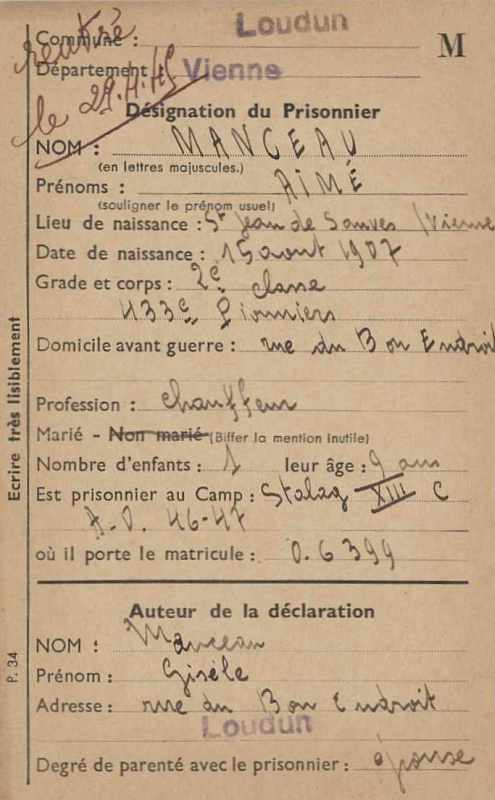 Commune : Loudun
M
rentré
Département : Vienne
le 29.4.45
Désignation du Prisonnier
NOM : MANCEAU
(en lettres majuscules.)
Prénoms : AIMÉ
(souligner le prénom usuel)
Lieu de naissance : St Jean de Sauves (Vienne
Date de naissance : 15 aout 1907
Grade et corps : 2e classe
433e Pionniers
Domicile avant guerre : rue du Bon Endroit
Profession : chauffeur
Marié - Non marié (Biffer la mention inutile)
Nombre d'enfants : 1 leur âge : 9 ans
Est prisonnier au Camp : Stalag XIII C
A.D. 46-47
où il porte le matricule : 0.6399
Auteur de la déclaration
NOM : Manceau
Prénom : Gisèle
Adresse : rue du Bon Endroit
Loudun
Degré de parenté avec le prisonnier : épouse
Ecrire très lisiblement
P. 34